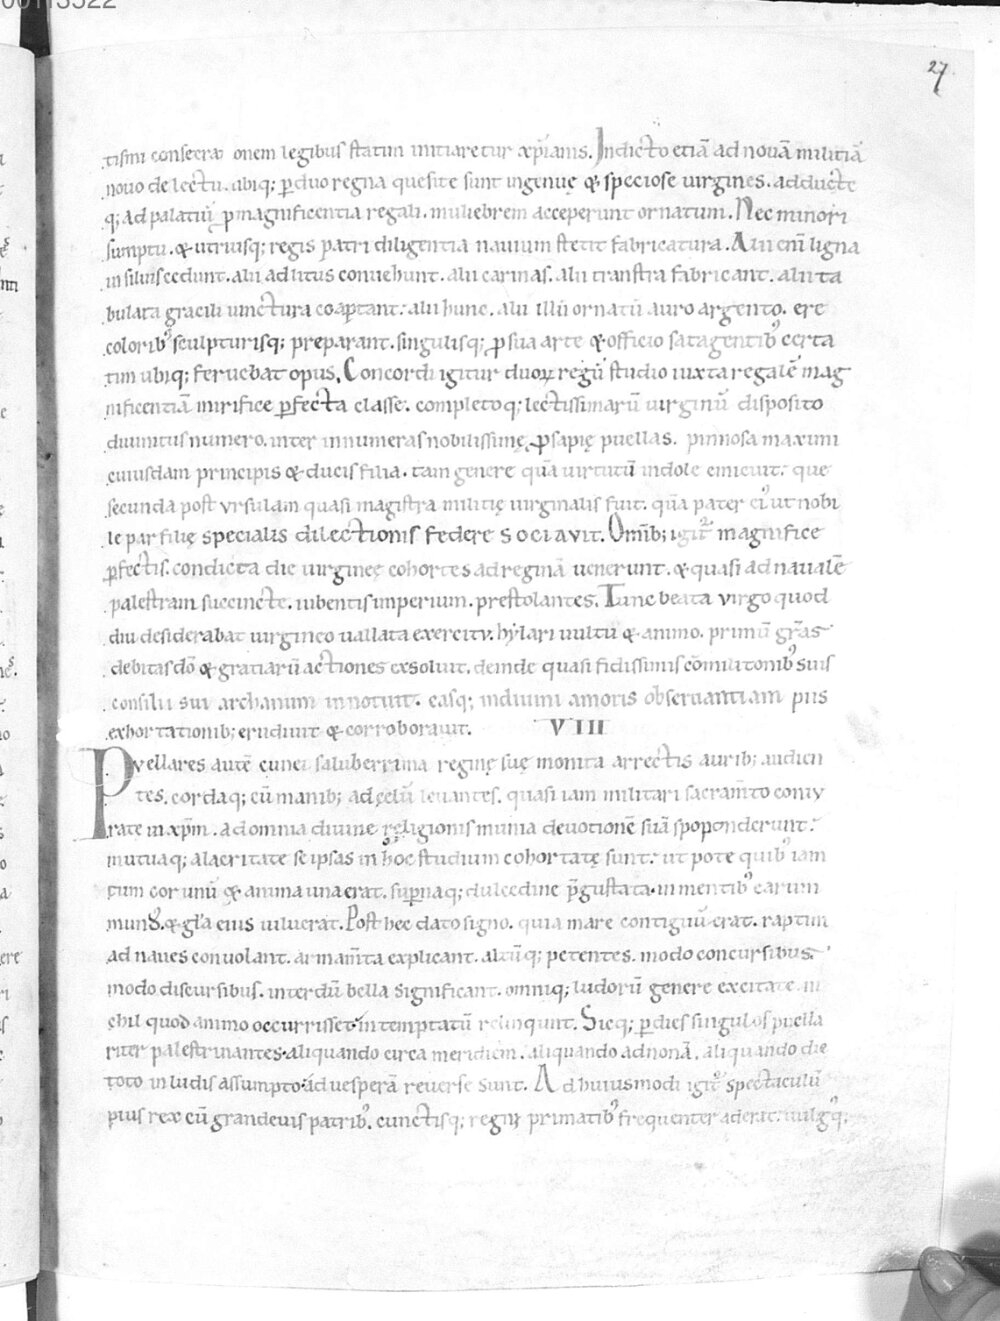 00113522
27
tismi consecra onem legibus statim initiaretur xp̄ianis. Indicto etiā ad nouā militiā
nouo delectu. ubiq; p̱ duo regna quesite sunt ingenuę & speciose uirgines. adducte
q; ad palatiū p̱ magnificentia regali. muliebrem acceperunt ornatum. Nec minori
sumptu. & utriusq; regis patri diligentia nauium stetit fabricatura. Alii enī ligna
in siluis cedunt. alii ad litus conuehunt. alii carinas. alii transtra fabricant. alii ta
bulata gracili iunctura coaptant. alii hunc. alii illū ornatū auro argento. ere
coloribꝰ sculpturisq; preparant. singulisq; ꝓ sua arte & officio satagentibꝰ certa
tim ubiq; feruebat opus. Concordi igitur duoꝝ regū studio iuxta regalē mag
nificentiā mirifice p̱fecta classe. completoq; lectissimarū uirginū disposito
diuinitus numero. inter innumeras nobilissimę ꝓsapię puellas. pinnosa maximi
cuiusdam principis & ducis filia. tam genere quā uirtutū indole enicuit. que
secunda post ursulam quasi magistra militię uirginalis fuit. quā pater eiꝰ ut nobi
le par filię specialis dilectionis federe sociavit. Omīb; igit᷒ magnifice
p̱fectis. condicta die uirgineę cohortes ad reginā uenerunt. & quasi ad naualē
palestram succincte. iubentis imperium. prestolantes. Tunc beata virgo quod
diu desiderabat uirgineo uallata exercitv. hylari uultu & animo. primū gr̄as
debitas dō & gratiarū actiones exsoluit. deinde quasi fidissimis cōmilitonibꝰ suis
consilii sui archanum innotuit. easq; in diuini amoris obseruantiam piis
exhortationib; erudiuit & corroborauit. VIII
Pvellares autē cunei saluberrima reginę suę monita arrectis aurib; audien
tes. cordaq; cū manib; ad cęlū leuantes. quasi iam militari sacram̄to coniv
rate in xp̄m. ad omnia diuine religionis munia deuotionē suā spoponderunt.
mutuaq; alacritate se ipsas in hoc studium cohortatę sunt. ut pote quibꝰ iam
tum cor unū & anima una erat. sup̱naq; dulcedine p̄gustata. in mentibꝰ earum
mundꝰ. & gl̄a eius uiluerat. Post hec dato signo. quia mare contiguū erat. raptim
ad naues conuolant. armam̄ta explicant. altūq; petentes. modo concursibus.
modo discursibus. interdū bella significant. omniq; ludorū genere excitate. ni
chil quod animo occurrisset. intemptatū relinqunt. Sicq; p̱ dies singulos puella
riter palestrinantes. aliquando circa meridiem. aliquando ad nonā. aliquando die
toto in ludis assumpto. ad uesperā reuerse sunt. Ad huiusmodi igit᷒ spectaculū
pius rex cū grandeuis patribꝰ. cunctisq; regni primatibꝰ frequenter aderat. uulgꝰq;